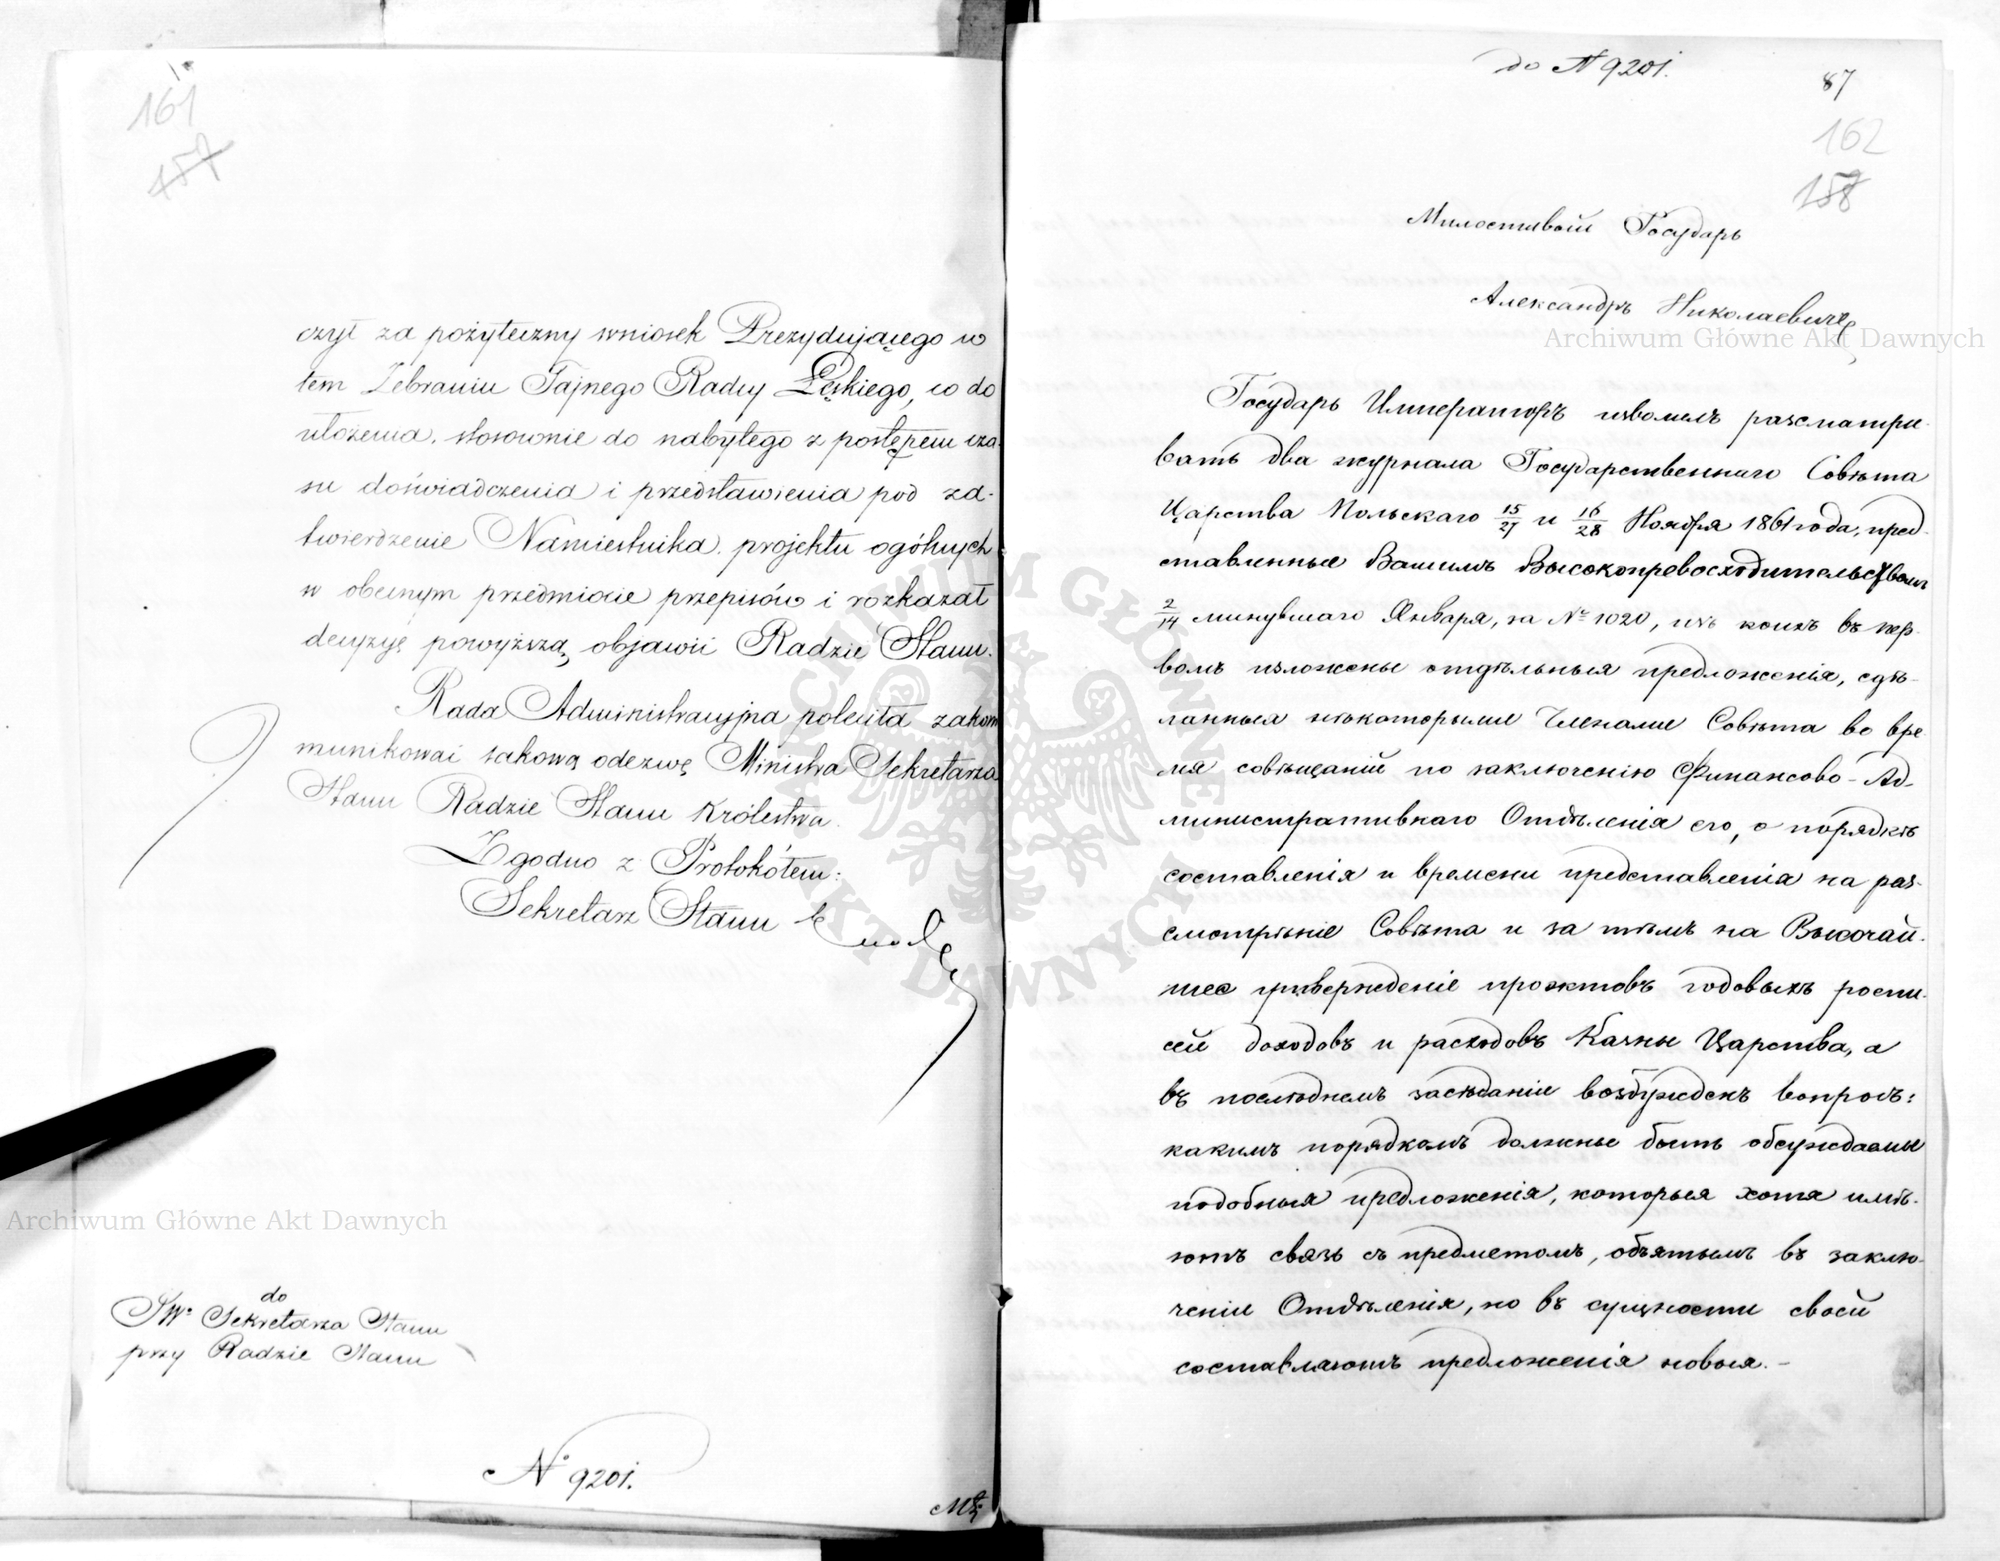 161
157
czył za pożyteczny wniosek Prezydującego w
tem Zebraniu Tajnego Radcy Łęskiego, co do
ułożenia, stosownie do nabytego z postępem cza-
su doświadczenia i przedstawienia pod za-
twierdzenie Namiestnika, projektu ogólnych
w obecnym przedmiocie przepisów i rozkazał
decyzyę powyższą, objawić Radzie Stanu.
Rada Administracyjna poleciła zakom
munikować takową odezwę Ministra Sekretarza
Stanu Radzie Stanu Królestwa.
Zgodno z Protokółem:
Sekretarz Stanu
do
JW. Sekretarza Stanu
przy Radzie Stanu
N° 9201.
do N 9201.
87
162
158
Милостивый Государь
Александръ Николаевичъ,
Государь Императоръ изволилъ разсматри-
вать два журнала Государственнаго Совѣта
Царства Польскаго 15/27 и 16/28 Ноября 1861 года, пред-
ставленные Вашимъ Высокопревосходительствомъ
2/14 минувшаго Января, за № 1020, изъ коихъ въ пер-
вомъ изложены отдѣльныя предложенія, сдѣ-
ланныя нѣкоторыми Членами Совѣта во вре-
мя совѣщаній по заключенію Финансово-Ад-
министративнаго Отдѣленія его, о порядкѣ
составленія и времени представленія на раз-
смотрѣніе Совѣта и за тѣмъ на Высочай-
шее утвержденіе проэктовъ годовыхъ роспи-
сей доходовъ и расходовъ Казны Царства, а
въ послѣднемъ засѣданіи возбужденъ вопросъ:
какимъ порядкомъ должны быть обсуждаемы
подобныя предложенія, которыя хотя имѣ-
ютъ связь съ предметомъ, объятымъ въ заклю-
ченіи Отдѣленія, но въ сущности своей
составляютъ предложенія новыя. -
Archiwum Główne Akt Dawnych
Archiwum Główne Akt Dawnych
ARCHIWUM GŁÓWNE AKT DAWNYCH